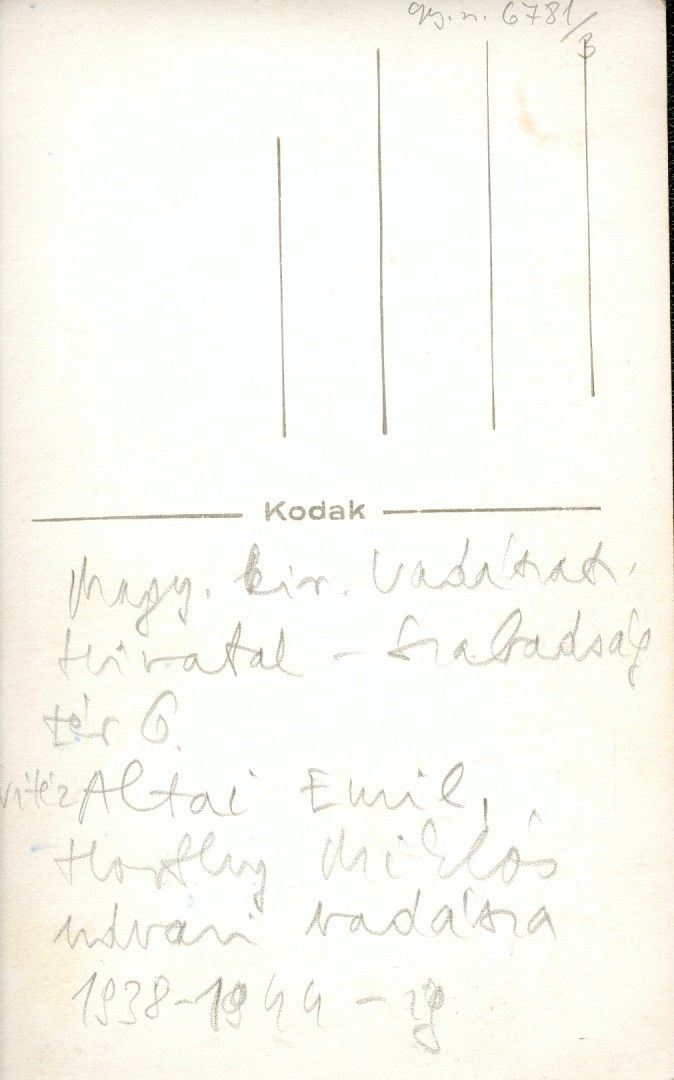 gy. n. 6781/B
Kodak
Magy. kir. Vadászati
Hivatal - Szabadság
tér 6.
vitéz Altai Emil,
Horthy Miklós
udvari vadásza
1938-1944-ig